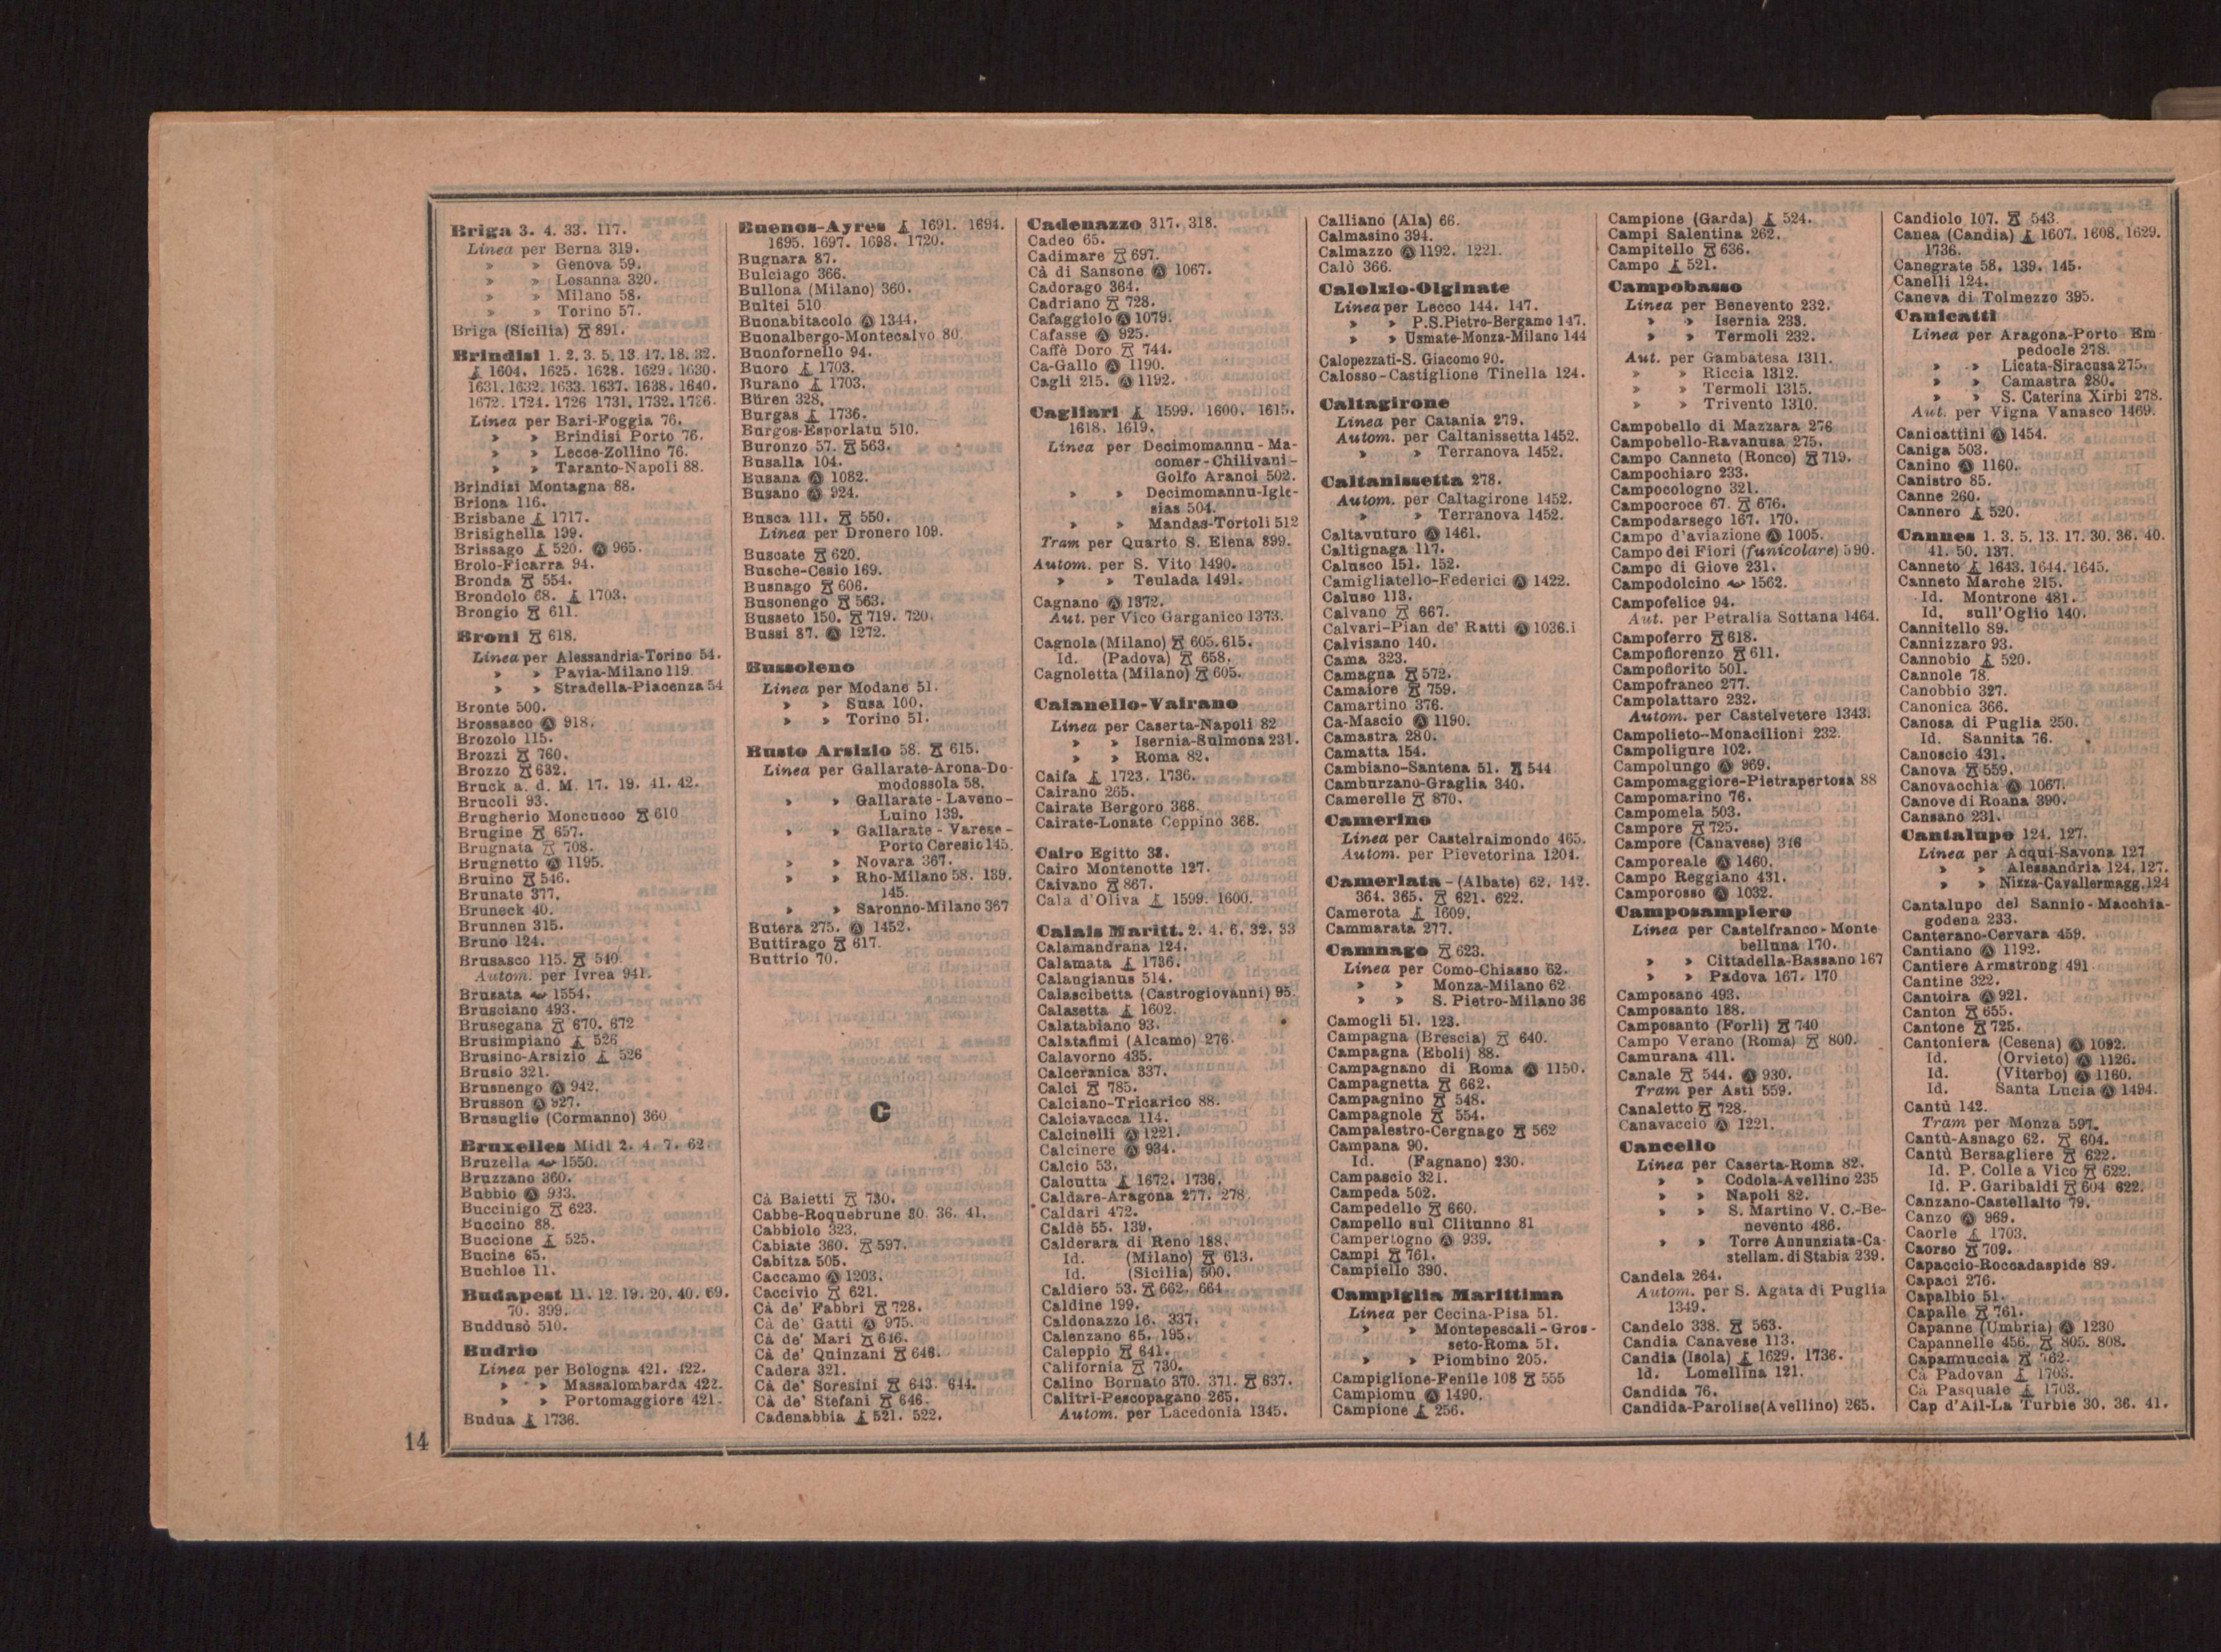 Briga 3. 4. 33. 117.
Linea per Berna 319.
» » Genova 59.
» » Losanna 320.
» » Milano 58.
» » Torino 57.
Briga (Sicilia) 891.
Brindisi 1. 2. 3. 5. 13. 17. 18. 32.
1604. 1625. 1628. 1629. 1630.
1631. 1632. 1633. 1637. 1638. 1640.
1672. 1724. 1726 1731. 1732. 1736.
Linea per Bari-Foggia 76.
» » Brindisi Porto 76.
» » Lecce-Zollino 76.
» » Taranto-Napoli 88.
Brindisi Montagna 88.
Briona 116.
Brisbane 1717.
Brisighella 199.
Brissago 520. Ⓐ 965.
Brolo-Ficarra 94.
Bronda 554.
Brondolo 68. 1703.
Brongio 611.
Broni 618.
Linea per Alessandria-Torino 54.
» » Pavia-Milano 119.
» » Stradella-Piacenza 54
Bronte 500.
Brossasco Ⓐ 918.
Brozolo 115.
Brozzi 760.
Brozzo 632.
Bruck a. d. M. 17. 19. 41. 42.
Brucoli 93.
Brugherio Moncucco 610
Brugine 657.
Brugnata 708.
Brugnetto Ⓐ 1195.
Bruino 546.
Brunate 377.
Bruneck 40.
Brunnen 315.
Bruno 124.
Brusasco 115. 540.
Autom. per Ivrea 941.
Brusata 1554.
Brusciano 493.
Brusegana 670. 672
Brusimpiano 526
Brusino-Arsizio 526
Brusio 321.
Brusnengo Ⓐ 942.
Brusson Ⓐ 927.
Brusuglio (Cormanno) 360
Bruxelles Midi 2. 4. 7. 62.
Bruzella 1550.
Bruzzano 360.
Bubbio Ⓐ 933.
Buccinigo 623.
Buccino 88.
Buccione 525.
Bucine 65.
Buchloe 11.
Budapest 11. 12. 19. 20. 40. 69.
70. 399.
Buddusò 510.
Budrio
Linea per Bologna 421. 422.
» » Massalombarda 422.
» » Portomaggiore 421.
Budua 1736.
Buenos-Ayres 1691. 1694.
1695. 1697. 1698. 1720.
Bugnara 87.
Bulciago 366.
Bullona (Milano) 360.
Bultei 510
Buonabitacolo Ⓐ 1344.
Buonalbergo-Montecalvo 80
Buonfornello 94.
Buoro 1703.
Burano 1703.
Büren 328.
Burgas 1736.
Burgos-Esporlatu 510.
Buronzo 57. 563.
Busalla 104.
Busana Ⓐ 1082.
Busano Ⓐ 924.
Busca 111. 550.
Linea per Dronero 109.
Buscate 620.
Busche-Cesio 169.
Busnago 606.
Busonengo 563.
Busseto 150. 719. 720.
Bussi 87. Ⓐ 1272.
Bussoleno
Linea per Modane 51.
» » Susa 100.
» » Torino 51.
Busto Arsizio 58. 615.
Linea per Gallarate-Arona-Do-
modossola 58.
» » Gallarate - Laveno -
Luino 139.
» » Gallarate - Varese -
Porto Ceresio 145.
» » Novara 367.
» » Rho-Milano 58. 139.
145.
» » Saronno-Milano 367
Butera 275. Ⓐ 1452.
Buttirago 617.
Buttrio 70.
C
Cà Baietti 730.
Cabbe-Roquebrune 30. 36. 41.
Cabbiolo 323.
Cabiate 360. 597.
Cabitza 505.
Caccamo Ⓐ 1203.
Caccivio 621.
Cà de' Fabbri 728.
Cà de' Gatti Ⓐ 975.
Cà de' Mari 646.
Cà de' Quinzani 646.
Cadera 321.
Cà de' Soresini 643. 644.
Cà de' Stefani 646.
Cadenabbia 521. 522.
Cadenazzo 317. 318.
Cadeo 65.
Cadimare 697.
Cà di Sansone Ⓐ 1067.
Cadorago 364.
Cadriano 728.
Cafaggiolo Ⓐ 1079.
Cafasse Ⓐ 925.
Caffè Doro 744.
Ca-Gallo Ⓐ 1190.
Cagli 215. Ⓐ 1192.
Cagliari 1599. 1600. 1615.
1618. 1619.
Linea per Decimomannu - Ma-
comer - Chilivani -
Golfo Aranci 502.
» » Decimomannu-Igle-
sias 504.
» » Mandas-Tortoli 512
Tram per Quarto S. Elena 899.
Autom. per S. Vito 1490.
» » Teulada 1491.
Cagnano Ⓐ 1372.
Aut. per Vico Garganico 1373.
Cagnola (Milano) 605. 615.
Id. (Padova) 658.
Cagnoletta (Milano) 605.
Caianello-Vairano
Linea per Caserta-Napoli 82
» » Isernia-Sulmona 231.
» » Roma 82.
Caifa 1723. 1736.
Cairano 265.
Cairate Bergoro 368.
Cairate-Lonate Ceppino 368.
Cairo Egitto 32.
Cairo Montenotte 127.
Caivano 867.
Cala d'Oliva 1599. 1600.
Calais Maritt. 2. 4. 6. 32. 33
Calamandrana 124.
Calamata 1736.
Calangianus 514.
Calascibetta (Castrogiovanni) 95.
Calasetta 1602.
Calatabiano 93.
Calatafimi (Alcamo) 276.
Calavorno 435.
Calceranica 337.
Calci 785.
Calciano-Tricarico 88.
Calciavacca 114.
Calcinelli Ⓐ 1221.
Calcinere Ⓐ 934.
Calcio 53.
Calcutta 1672. 1736.
Caldare-Aragona 277. 278
Caldari 472.
Caldè 55. 139.
Calderara di Reno 188.
Id. (Milano) 613.
Id. (Sicilia) 500.
Caldiero 53. 662. 664
Caldine 199.
Caldonazzo 16. 337.
Calenzano 65. 195.
Caleppio 641.
California 730.
Calino Bornato 370. 371. 637.
Calitri-Pescopagano 265.
Autom. per Lacedonia 1345.
Calliano (Ala) 66.
Calmasino 394.
Calmazzo Ⓐ 1192. 1221.
Calò 366.
Calolzio-Olginate
Linea per Lecco 144. 147.
» » P.S.Pietro-Bergamo 147.
» » Usmate-Monza-Milano 144
Calopezzati-S. Giacomo 90.
Calosso-Castiglione Tinella 124.
Caltagirone
Linea per Catania 279.
Autom. per Caltanissetta 1452.
» » Terranova 1452.
Caltanissetta 278.
Autom. per Caltagirone 1452.
» » Terranova 1452.
Caltavuturo Ⓐ 1461.
Caltignaga 117.
Calusco 151. 152.
Camigliatello-Federici Ⓐ 1422.
Caluso 113.
Calvano 667.
Calvari-Pian de' Ratti Ⓐ 1036.i
Calvisano 140.
Cama 323.
Camagna 572.
Camaiore 759.
Camartino 376.
Ca-Mascio Ⓐ 1190.
Camastra 280.
Camatta 154.
Cambiano-Santena 51. 544
Camburzano-Graglia 340.
Camerelle 870.
Camerino
Linea per Castelraimondo 465.
Autom. per Pievetorina 1204.
Camerlata - (Albate) 62. 142.
364. 365. 621. 622.
Camerota 1609.
Cammarata 277.
Camnago 623.
Linea per Como-Chiasso 62.
» » Monza-Milano 62
» » S. Pietro-Milano 36
Camogli 51. 123.
Campagna (Brescia) 640.
Campagna (Eboli) 88.
Campagnano di Roma Ⓐ 1150.
Campagnetta 662.
Campagnino 548.
Campagnole 554.
Campalestro-Cergnago 562
Campana 90.
Id. (Fagnano) 230.
Campascio 321.
Campeda 502.
Campedello 660.
Campello sul Clitunno 81
Campertogno Ⓐ 939.
Campi 761.
Campiello 390.
Campiglia Marittima
Linea per Cecina-Pisa 51.
» » Montepescali - Gros-
seto-Roma 51.
» » Piombino 205.
Campiglione-Fenile 108 555
Campiomu Ⓐ 1490.
Campione 256.
Campione (Garda) 524.
Campi Salentina 262.
Campitello 636.
Campo 521.
Campobasso
Linea per Benevento 232.
» » Isernia 233.
» » Termoli 232.
Aut. per Gambatesa 1311.
» » Riccia 1312.
» » Termoli 1315.
» » Trivento 1310.
Campobello di Mazzara 276
Campobello-Ravanusa 275.
Campo Canneto (Ronco) 719.
Campochiaro 233.
Campocologno 321.
Campocroce 67. 676.
Campodarsego 167. 170.
Campo d'aviazione Ⓐ 1005.
Campo dei Fiori (funicolare) 590.
Campo di Giove 231.
Campodolcino 1562.
Campofelice 94.
Aut. per Petralia Sottana 1464.
Campoferro 618.
Campofiorenzo 611.
Campofiorito 501.
Campofranco 277.
Campolattaro 232.
Autom. per Castelvetere 1343.
Campolieto-Monacilioni 232.
Campoligure 102.
Campolungo Ⓐ 969.
Campomaggiore-Pietrapertosa 88
Campomarino 76.
Campomela 503.
Campore 725.
Campore (Canavese) 346
Camporeale Ⓐ 1460.
Campo Reggiano 431.
Camporosso Ⓐ 1032.
Camposampiero
Linea per Castelfranco - Monte
belluna 170.
» » Cittadella-Bassano 167
» » Padova 167. 170
Camposano 493.
Camposanto 188.
Camposanto (Forlì) 740
Campo Verano (Roma) 800.
Camurana 411.
Canale 544. Ⓐ 930.
Tram per Asti 559.
Canaletto 728.
Canavaccio Ⓐ 1221.
Cancello
Linea per Caserta-Roma 82.
» » Codola-Avellino 235
» » Napoli 82.
» » S. Martino V. C.-Be-
nevento 486.
» » Torre Annunziata-Ca-
stellam. di Stabia 239.
Candela 264.
Autom. per S. Agata di Puglia
1349.
Candelo 338. 563.
Candia Canavese 113.
Candia (Isola) 1629. 1736.
Id. Lomellina 121.
Candida 76.
Candida-Parolise(Avellino) 265.
Candiolo 107. 543.
Canea (Candia) 1607. 1608. 1629.
1736.
Canegrate 58. 139. 145.
Canelli 124.
Caneva di Tolmezzo 395.
Canicattì
Linea per Aragona-Porto Em
pedocle 278.
» » Licata-Siracusa 275.
» » Camastra 280.
» » S. Caterina Xirbi 278.
Aut. per Vigna Vanasco 1469.
Canicattini Ⓐ 1454.
Caniga 503.
Canino Ⓐ 1160.
Canistro 85.
Canne 260.
Cannero 520.
Cannes 1. 3. 5. 13. 17. 30. 36. 40.
41. 50. 137.
Canneto 1643. 1644. 1645.
Canneto Marche 215.
Id. Montrone 481.
Id. sull'Oglio 140.
Cannitello 89.
Cannizzaro 93.
Cannobio 520.
Cannole 78.
Canobbio 327.
Canonica 366.
Canosa di Puglia 250.
Id. Sannita 76.
Canoscio 431.
Canova 559.
Canovacchia Ⓐ 1067.
Canove di Roana 390.
Cansano 231.
Cantalupo 124. 127.
Linea per Acqui-Savona 127
» » Alessandria 124. 127.
» » Nizza-Cavallermagg.124
Cantalupo del Sannio - Macchia-
godena 233.
Canterano-Cervara 459.
Cantiano Ⓐ 1192.
Cantiere Armstrong 491
Cantine 322.
Cantoira Ⓐ 921.
Canton 655.
Cantone 725.
Cantoniera (Cesena) Ⓐ 1092.
Id. (Orvieto) Ⓐ 1126.
Id. (Viterbo) Ⓐ 1160.
Id. Santa Lucia Ⓐ 1494.
Cantù 142.
Tram per Monza 597.
Cantù-Asnago 62. 604.
Cantù Bersagliere 622.
Id. P. Colle a Vico 622.
Id. P. Garibaldi 604 622.
Canzano-Castellalto 79.
Canzo Ⓐ 969.
Caorle 1703.
Caorso 709.
Capaccio-Roccadaspide 89.
Capaci 276.
Capalbio 51.
Capalle 761.
Capanne (Umbria) Ⓐ 1230
Capannelle 456. 805. 808.
Capannuccia
Cà Padovan 1703.
Cà Pasquale 1703.
Cap d'Ail-La Turbie 30. 36. 41.
14